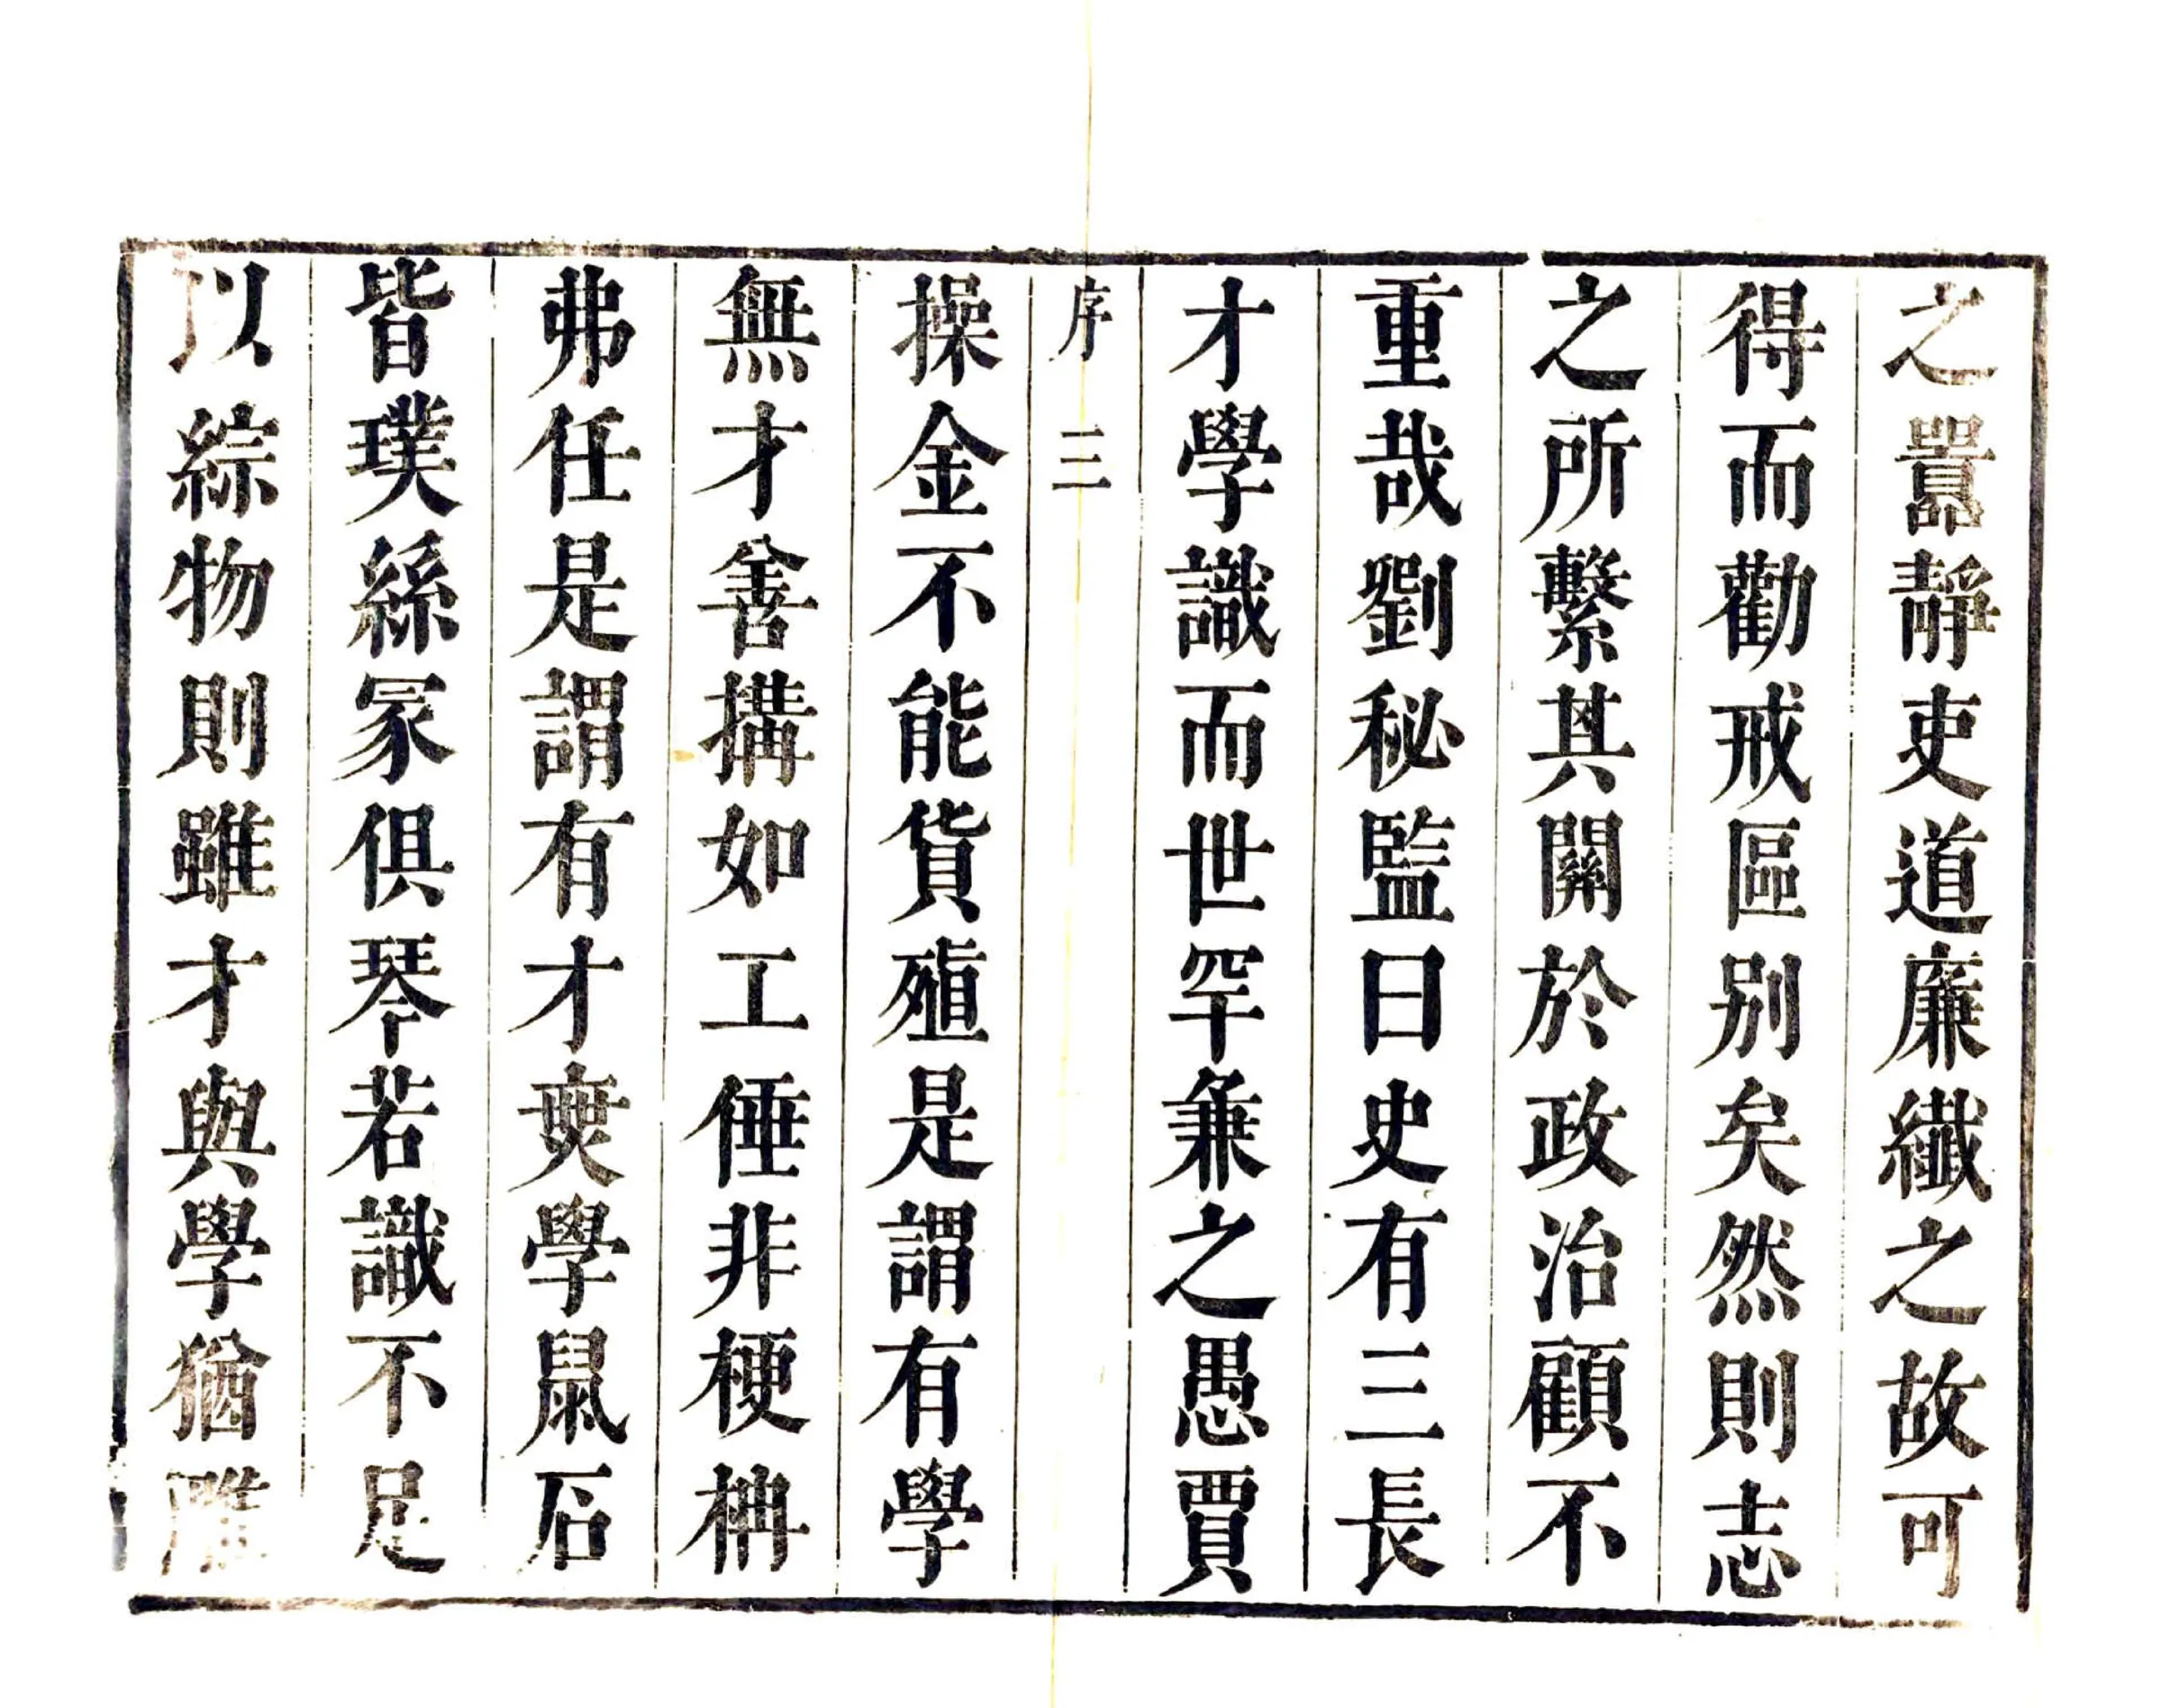 之囂靜吏道廉纖之故可
得而勸戒區别矣然則志
之所繫其關於政治顧不
重哉劉秘監曰史有三長
才學識而世罕兼之愚賈
序 三
操金不能貨殖是謂有學
無才善搆如工倕非梗枏
弗任是謂有才㒇學鼠石
皆璞絲冢俱琴若識不足
以綜物則雖才與學猶